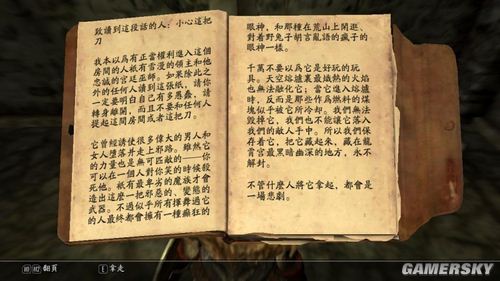 致讀到這段話的人：小心這把
刀
我本以為有正當權利進入這個
房間的人衹有雪漫的領主和他
忠誠的宮廷巫師。如果除此之
外的任何人讀到這張紙，請你
一定要明白自己有多愚蠢，請
轉身離開，而且不要和任何人
提起這間房間或者這把刀。
它曾經誘使很多偉大的男人和
女人墮落并走上邪路。雖然它
的力量也是無可匹敵的——你
可以在一個人對你笑的時候殺
死他。衹有最卑劣的魔族才會
造出這麼一把邪惡的、變態的
武器。不過似乎所有揮舞過它
的人最終都會擁有一種癲狂的
眼神，和那種在荒山上閑逛、
對着野兔子胡言亂語的瘋子的
眼神一樣。
千萬不要以為它是好玩的玩
具。天空熔爐裏最熾熱的火焰
也無法融化它；當它進入熔爐
時，反而是那些作為燃料的煤
塊似乎被它所冷却。我們無法
毀掉它，我們也不能讓它落入
我們的敵人手中。所以我們保
存着它，把它藏起來，藏在龍
霄宮最黑暗幽深的地方，永不
解封。
不管什麼人將它拿起，都會是
一場悲劇。
翻頁
E 拿走
GAMERSKY